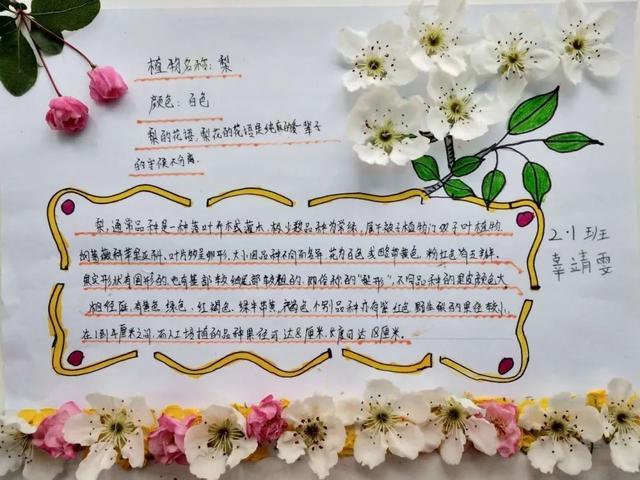 植物名称：梨
颜色：白色
梨的花语：梨花的花语是纯真的爱，一辈子
的守候不分离.
梨，通常品种是一种落叶乔木或灌木，极少数品种为常绿，属于被子植物门双子叶植物
纲蔷薇科苹果亚科。叶片多呈卵形，大小因品种不同而各异。花为白色，或略带黄色、粉红色，有五瓣。
果实形状有圆形的，也有基部较细尾部较粗的，即俗称的“梨形”；不同品种的果皮颜色大
相径庭，有黄色、绿色、红褐色、绿中带黄、褐色，个别品种亦有紫红色。野生梨的果径较小，
在1到4厘米之间，而人工培植的品种果径可达8厘米，长度可达18厘米。
2·1班
辜靖雯